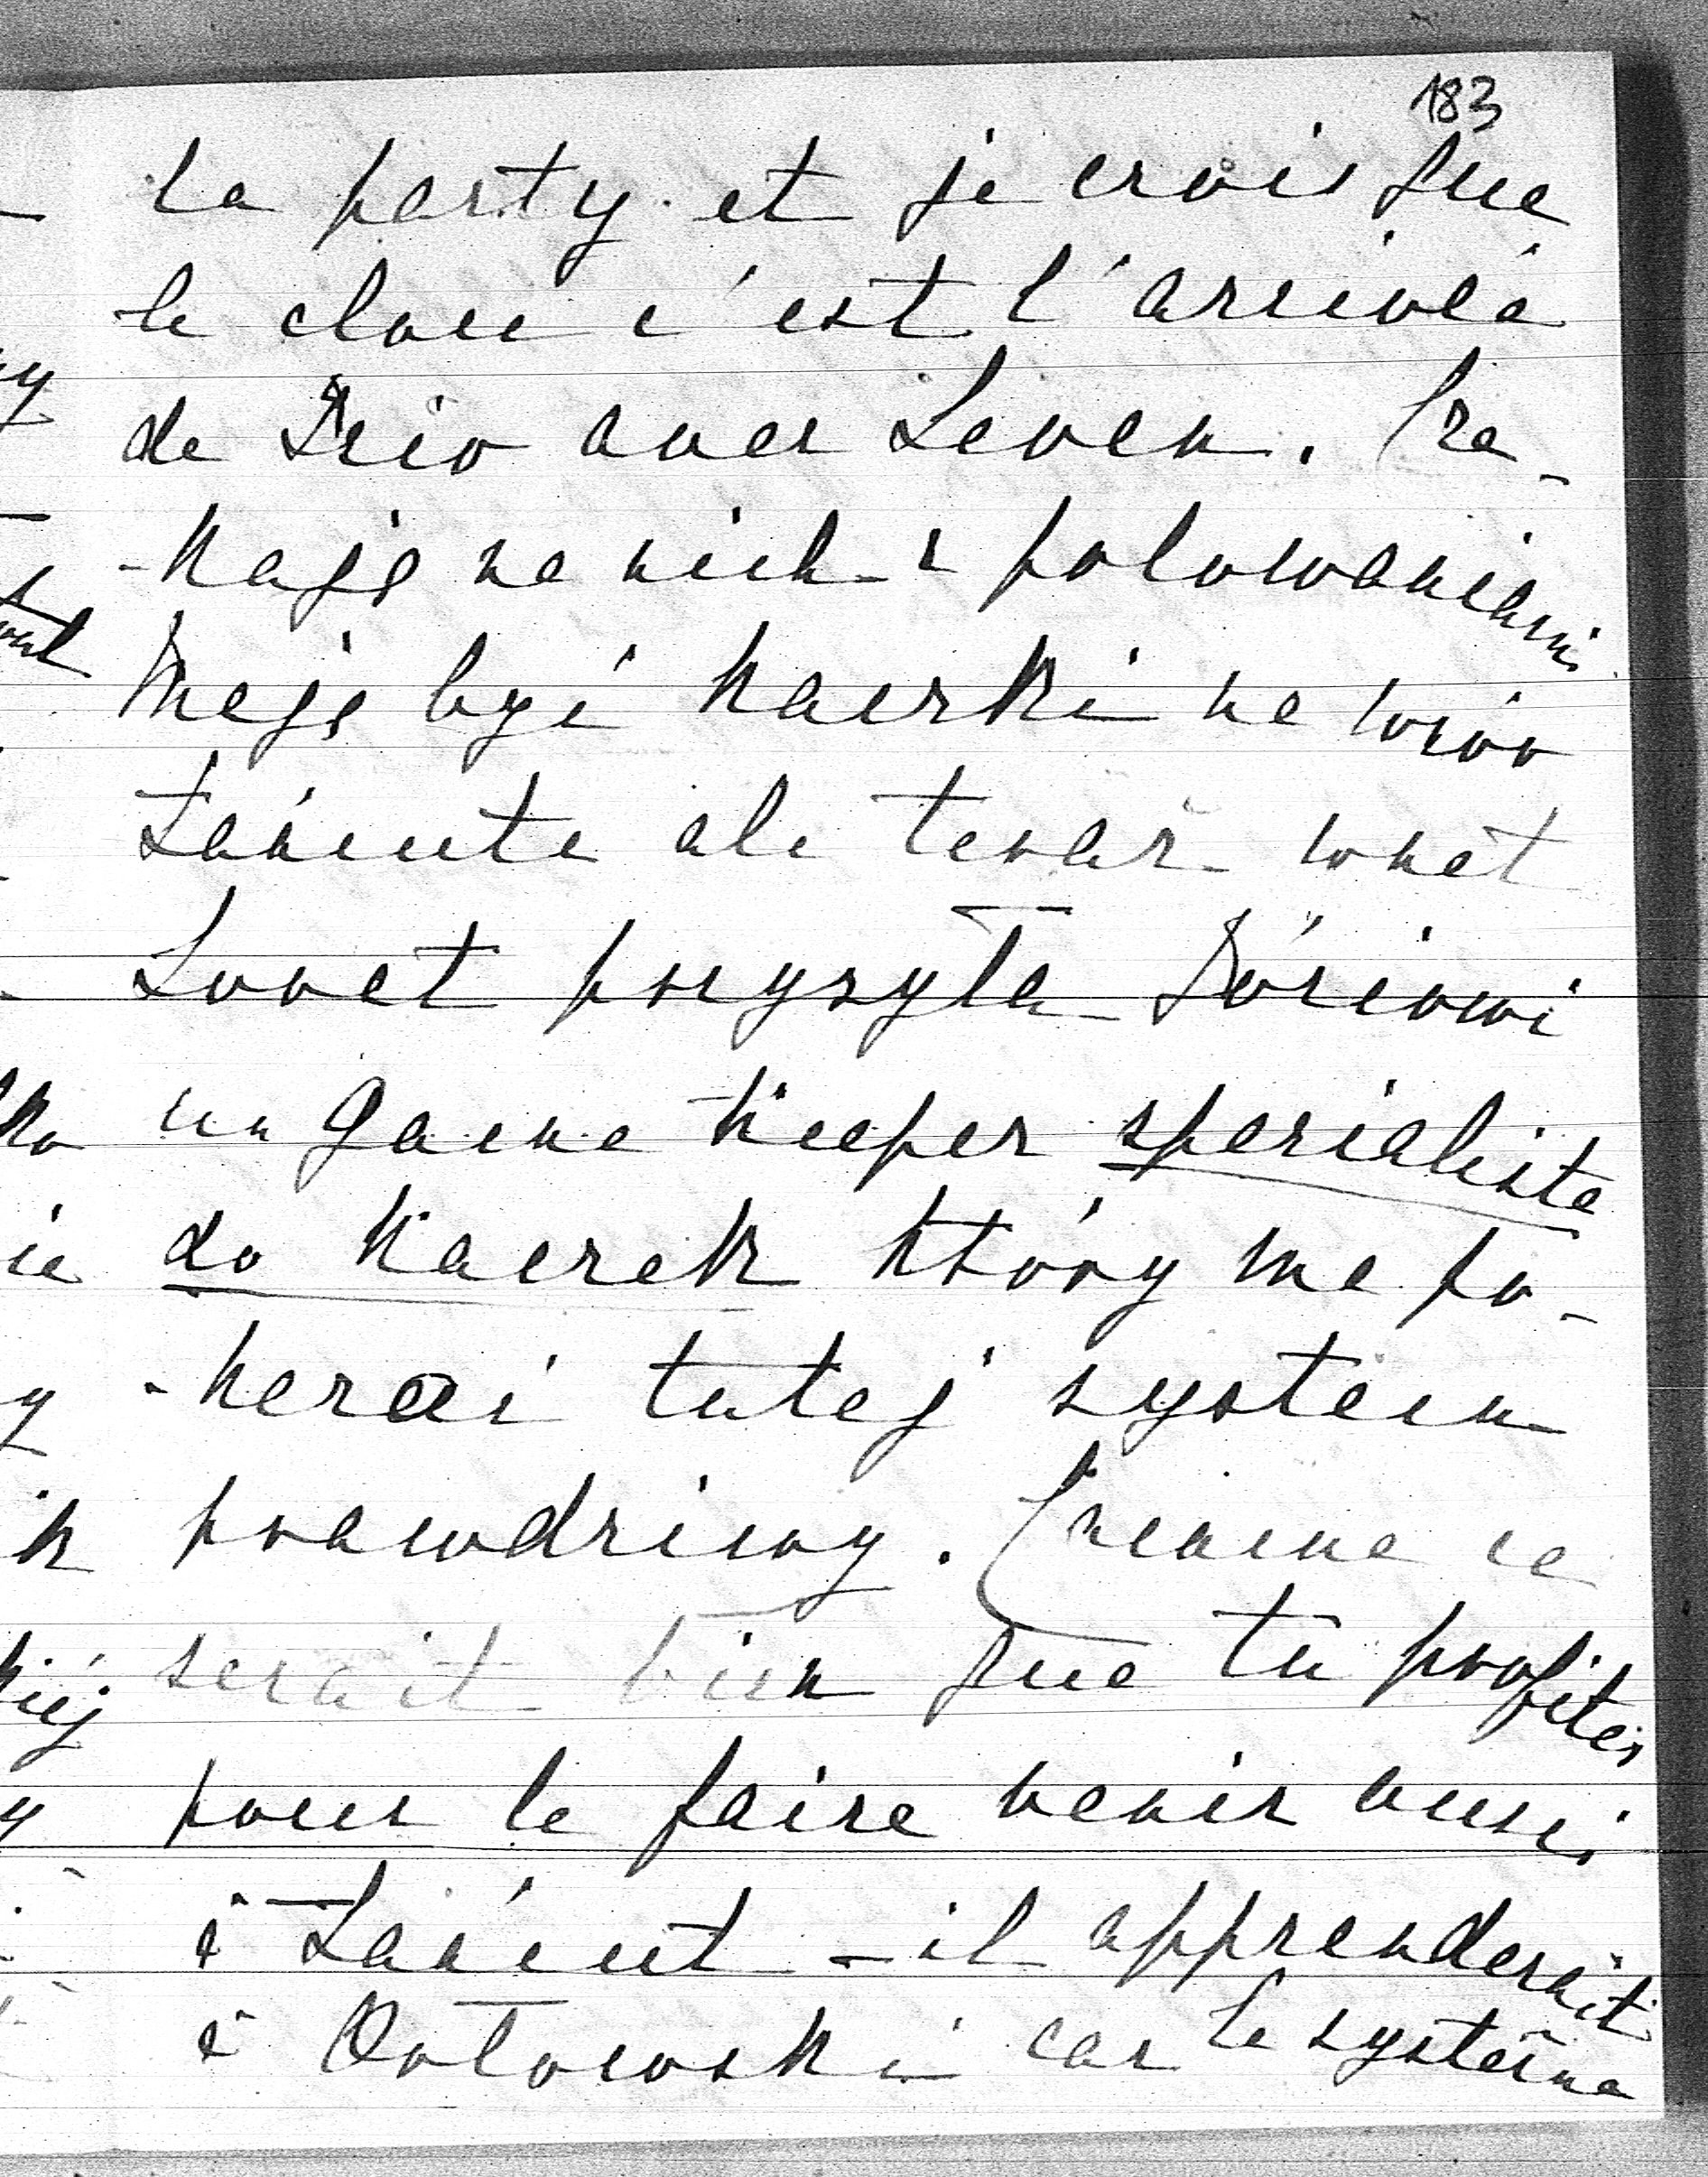 183
la party et je crois que
le clou c'est l'arrivée
de Józio avec Leven. Cze-
-kają na nich z polowaniami
Mają być kaczki na wiór
Łańcuta ale teraz wnet
Lovet przysyła Józiowi
un game keeper specialista
do kaczek który ma po-
-kazać tutej system
prawdziwy. Maman ce
serait bien que tu profites
pour le faire venir aussi
à Łańcut - il apprenderait
à Ootowski car le système